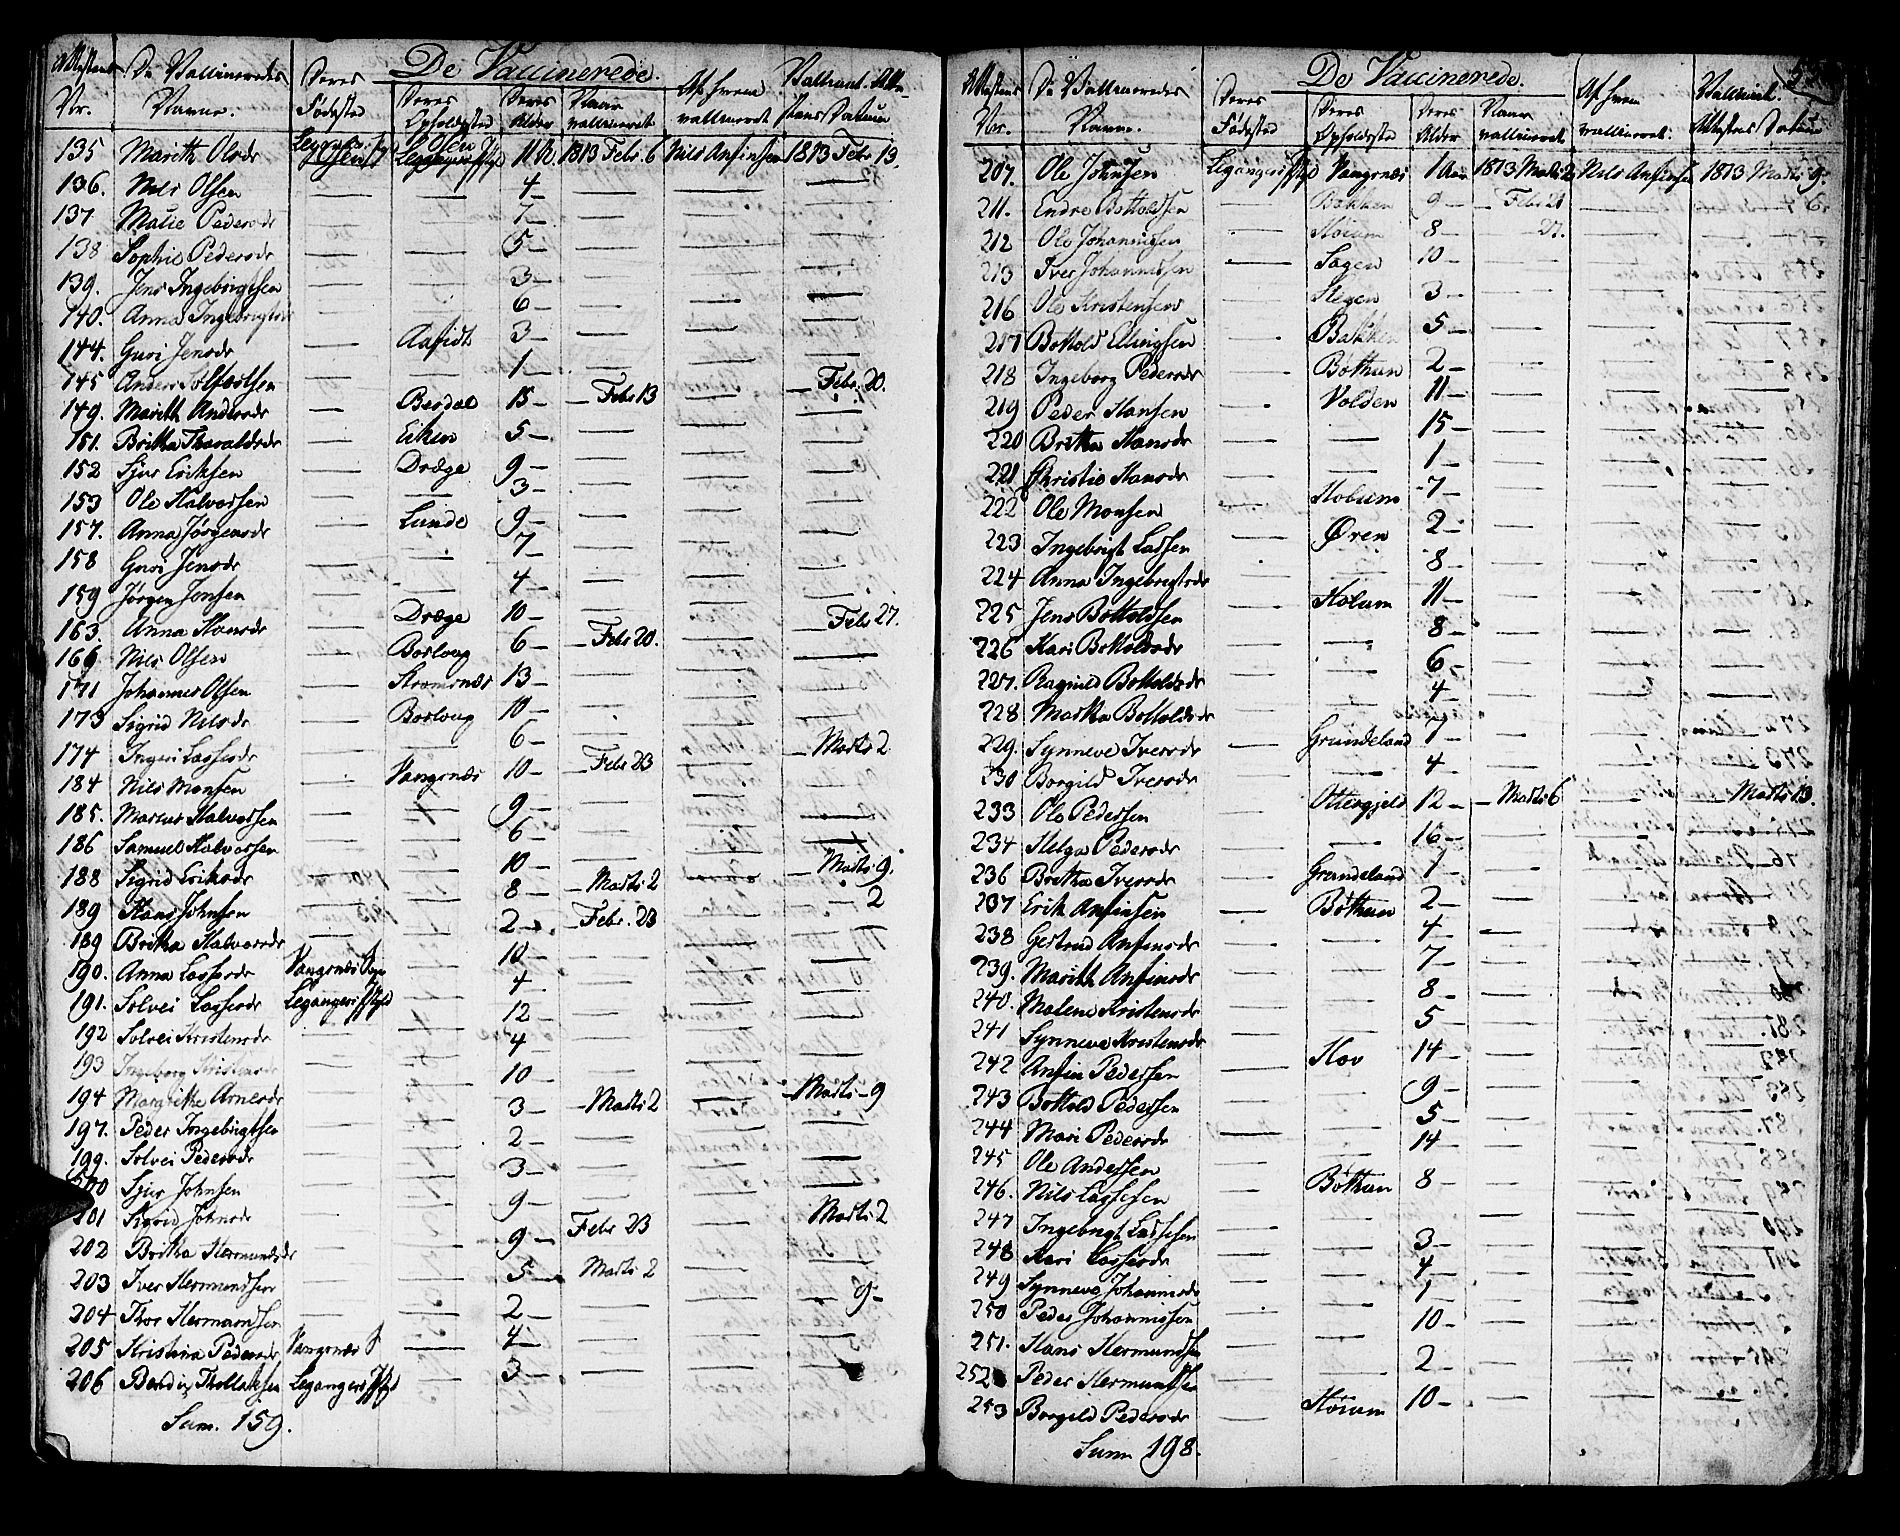 De Vaccinerede.
Attestens Nr. De Vaccineredes Navne. Deres Fødested Deres Opholdssted Deres Alder Naar vaccineret Af hvem vaccineret Vaccinat. Attestens Datum
135 Marith Olsdr 11 1813 Febr. 6 Nils Anfinsen 1813 Febr 13.
136. Nils Olsen — 4 —
137 Malie Pedersdr 7 —
138 Sophie Pedersdr 5 —
139. Jens Ingebrigtsen 3 —
140. Anna Ingebrigtsdr 6 —
144. Guri Jensdr Aafidt 3 —
145 Anders 1 —
149. Marith Andersdr Berdal 15 — Febr 13 Febr. 20.
151. Britha Thoraldsdr Eiken 5 —
152 Sjur Eriksen Dræge 9 —
153 Ole Halvorsen 3 —
157. Anna Jørgensdr Lunde 9 —
158 Guri Jensdr 7 —
159 Jørgen Jonsen 4 —
163. Anna Hansdr Dræge 10 — Febr 27.
169 Nils Olsen Borlaug 6 — Febr 20.
171 Johannes Olsen Stromsnæs 13 —
173 Sigrid Nilsdr Borlaug 10 —
174 Ingeri Lassesdr 6 — Marti 2
184 Nils Monsen Vangsnæs 10 — Febr 23
185. Marcus Halvorsen 9 —
186 Samuel Halvorsen 6 —
188 Sigrid Eriksdr 10 — Marti 9.
189 Hans Johnsen 8 — Marti 2 — 2
189 Britha Halvorsdr 2 — Febr. 23
190. Anna Lassesdr Vangsnæs 10 —
191. Solvei Lassesdr Leganger 4 —
192 Solvei Kristensdr 12 —
193 Ingeborg Kristensdr 4 —
194 Margrethe Arnesdr 10 — Marti 9
197. Peder Ingebrigtsen 3 — Marti 2
199. Solvei Pedersdr 2 —
200 Sjur Johnsen 3 —
201 Sigrid Johnsdr 9 — Marti 2
202 Britha Hermundsdr 9 — Febr 23
203 Iver Hermundsen 5 — Marti 2
204 Thor Hermundsen 2 — 9 —
205 Kristina Pedersdr Vangsnæs 4 —
206 Bendix Thollaksen Leganger 3 —
Sum. 159.
De Vaccinerede.
Attestens Nr. De Vaccineredes Navne. Deres Fødested Deres Opholdssted Deres Alder Naar vaccineret Af hvem vaccineret. Vaccinat. Attestens Datum
207. Ole Johnsen Leganger Vangsnæs 1 Aar 1813 Marti 2 Nils Anfinsen 1813 Marti 9.
211. Endre Bottolfsen Bakken 9 — Febr 20 6
212 Ole Johannissen 8 — 27.
213 Iver Johannissen Sagen 10 —
216 Ole Kristensen Stegen 3 —
217 Bottold Ellingsen Bakken 5 —
218 Ingeborg Pedersdr Bøthun 2 —
219 Peder Hansen Volden 11 —
220 Britha Hansdr 15 —
221 Christie Hansdr 1 —
222 Ole Monsen 7 —
223 Ingebrigt Lassen Øren 2 —
224 Anna Ingebrigtsdr 8 —
225 Jens Bottoldsen 11 —
226 Kari Bottoldsdr 8 —
227. Ragnild Bottoldsdr 6 —
228 Martha Bottoldsdr 4 —
229. Synneve Iversdr Grundeland 7 —
230 Borgild Iversdr 4 —
233 Ole Pedersen 12 — Marti 6 Marti 13.
234 Helga Pedersdr 16 —
236 Britha Iversdr Grundeland 1 —
237 Erik Anfinsen Bøthun 2 —
238 Gertrud Anfinsdr 4 —
239. Marith Anfinsdr 7 —
240. Malene Kristensdr 8 —
241 Synneve Kristensdr 5 —
242 Anfin Pedersen Hov 14 —
243 Bottold Pedersen 9 —
244 Mari Pedersdr 5 —
245 Ole Andersen 14 —
246. Nils Lassesen Bøthun 8 —
247 Ingebrigt Lassesen
248 Kari Lassesdr 3 —
249 Synneve Johannisdr 4 —
250 Peder Johannissen 1 —
251. Hans Hermundsen 10 —
252 Peder Hermundsen 2 —
253 Borgild Pedersdr 10 —
Sum 198.